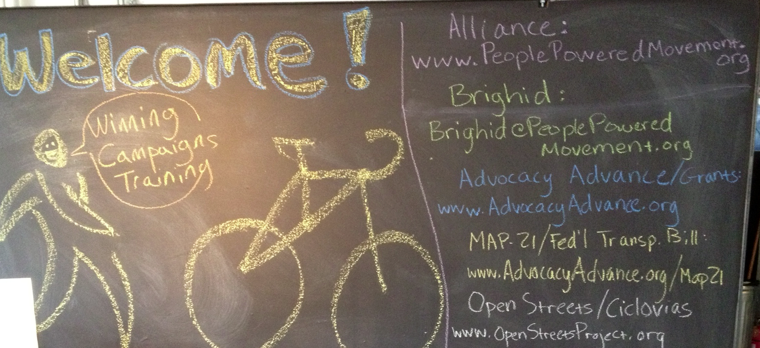 Welcome!
Winning
Campaigns
Training
Alliance:
www.PeoplePoweredMovement.
org
Brighid:
Brighid@PeoplePowered
Movement.org
Advocacy Advance/Grants:
www.AdvocacyAdvance.org
MAP-21/Fed'l Transp. Bill:
www.AdvocacyAdvance.org/Map21
Open Streets/Ciclovias
www.OpenStreetsProject.org